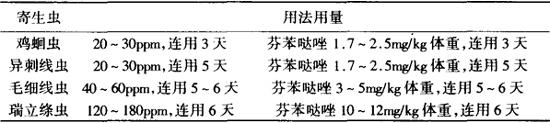 寄生虫 用法用量
鸡蛔虫 20~30ppm,连用3天 芬苯哒唑1.7~2.5mg/kg体重,连用3天
异刺线虫 20~30ppm,连用5天 芬苯哒唑1.7~2.5mg/kg体重,连用5天
毛细线虫 40~60ppm,连用5~6天 芬苯哒唑3~5mg/kg体重,连用5~6天
瑞立绦虫 120~180ppm,连用6天 芬苯哒唑10~12mg/kg体重,连用6天